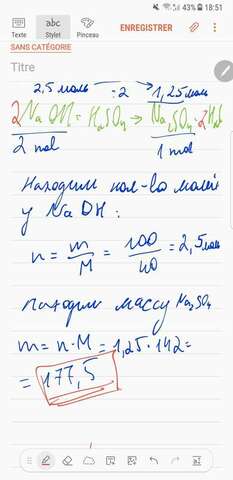 43% 18:51
abc
ENREGISTRER
Texte Stylet Pinceau
SANS CATÉGORIE
Titre
2,5 моль :2 → 1,25 моль
2NaOH + H₂SO₄ → Na₂SO₄ + 2H₂O
2 mol 1 mol
Находим кол-во молей
у NaOH:
n = m/M = 100/40 = 2,5 моль
Находим массу Na₂SO₄
m = n·M = 1,25·142 =
= 177,5